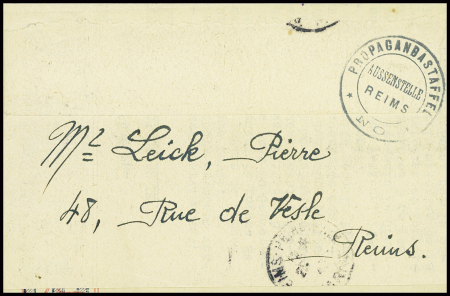 PROPAGANDASTAFFEL
AUSSENSTELLE
REIMS
NO
Mr Leick, Pierre
48, Rue de Vesle
Reims.